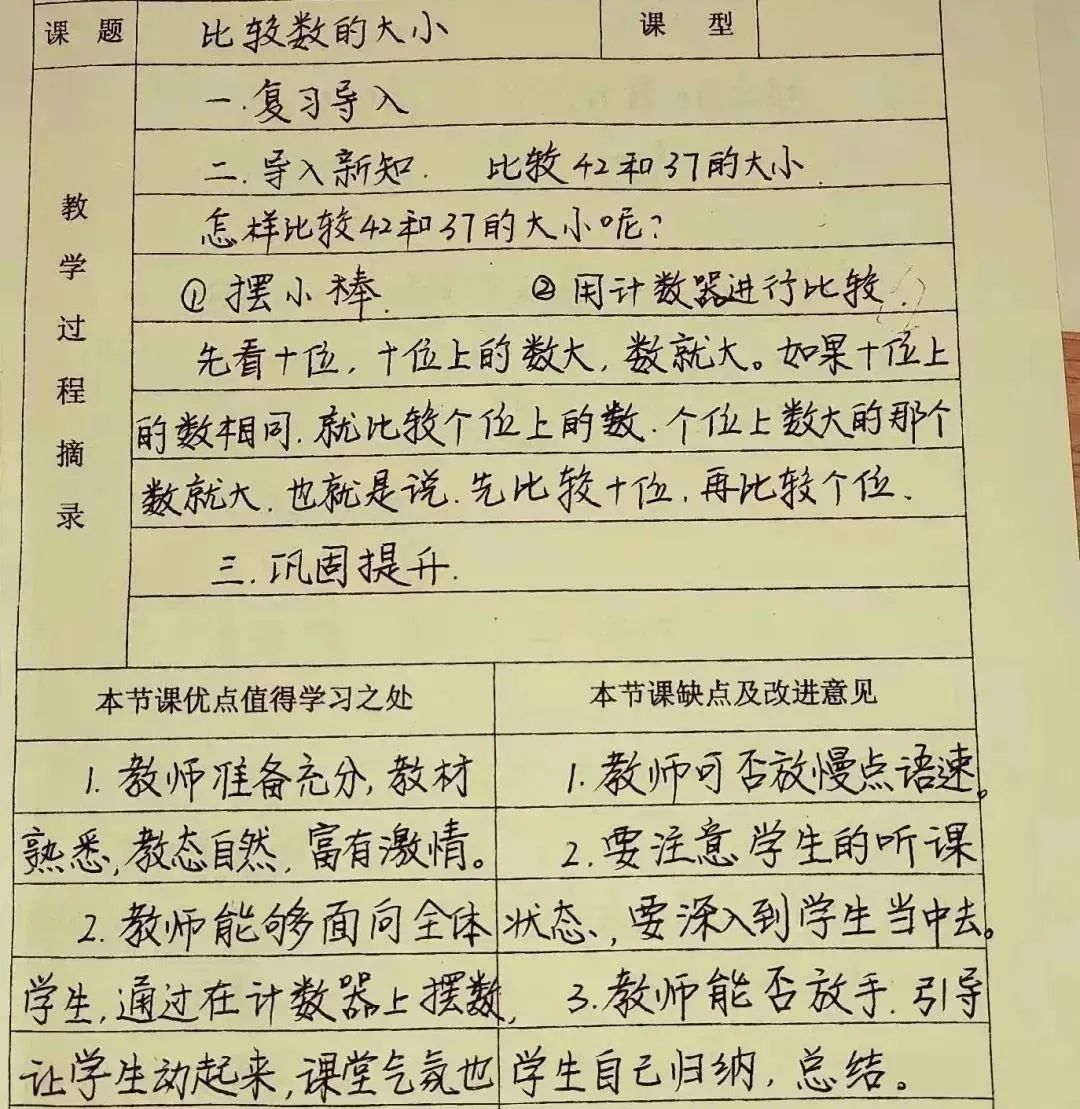 课 题 比较数的大小 课 型
教学过程摘录
一.复习导入
二.导入新知. 比较42和37的大小.
怎样比较42和37的大小呢?
①摆小棒. ②用计数器进行比较.
先看十位,十位上的数大,数就大。如果十位上
的数相同.就比较个位上的数.个位上数大的那个
数就大.也就是说.先比较十位,再比较个位.
三.巩固提升.
本节课优点值得学习之处
1. 教师准备充分,教材
熟悉,教态自然,富有激情。
2. 教师能够面向全体
学生,通过在计数器上摆数,
让学生动起来,课堂气氛也
本节课缺点及改进意见
1.教师可否放慢点语速。
2.要注意学生的听课
状态,要深入到学生当中去。
3.教师能否放手.引导
学生自己归纳,总结。